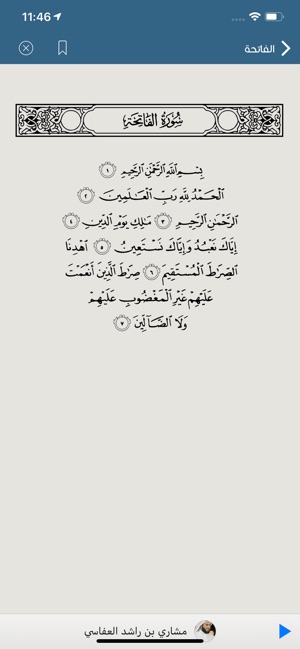 11:46
الفاتحة
سُورَةُ الفَاتِحَةِ
بِسْمِ اللَّهِ الرَّحْمَٰنِ الرَّحِيمِ ١
الْحَمْدُ لِلَّهِ رَبِّ الْعَالَمِينَ ٢
الرَّحْمَٰنِ الرَّحِيمِ ٣ مَالِكِ يَوْمِ الدِّينِ ٤
إِيَّاكَ نَعْبُدُ وَإِيَّاكَ نَسْتَعِينُ ٥ اهْدِنَا
الصِّرَاطَ الْمُسْتَقِيمَ ٦ صِرَاطَ الَّذِينَ أَنْعَمْتَ
عَلَيْهِمْ غَيْرِ الْمَغْضُوبِ عَلَيْهِمْ
وَلَا الضَّالِّينَ ٧
مشاري بن راشد العفاسي